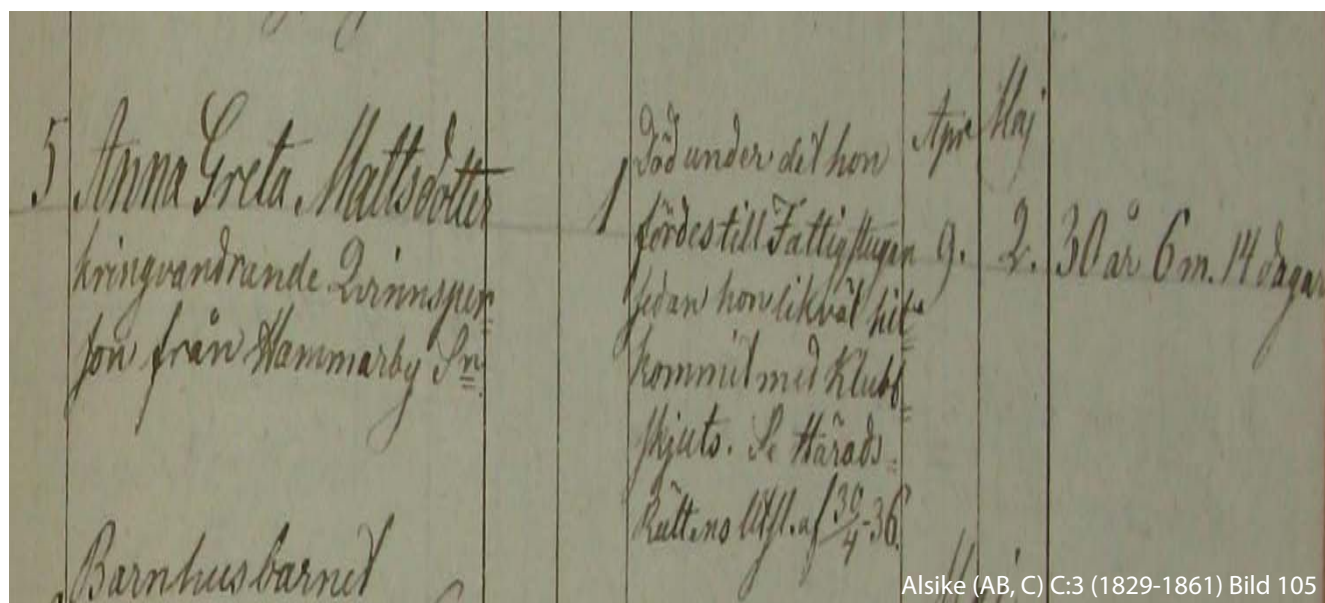 5 Anna Greta Mattsdotter
kringvandrande Qvinnsper-
son från Hammarby Sn
1
Död under det hon
fördes till Fattigstugan
sedan hon likväl hit-
kommit med Klubb-
skjuts. Se Härads-
Rättens Utsl. af 30/4-36.
Apr Maj
9. 2. 30 år 6 m. 14 dagar
Barnhusbarnet
Maj
Alsike (AB, C) C:3 (1829-1861) Bild 105